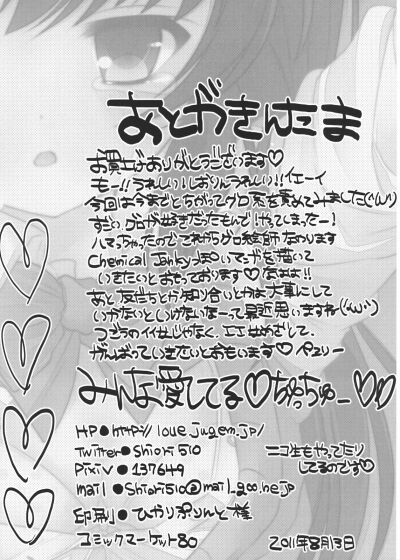 あとがきんたま
お買上げありがとうございます♡
もー!!うれしい!しおりんうれしい!!イエーイ
今回は今までとちがってグロ系を責めてみました(^ω^)
すごいグロが好きだったもんで!やってしまったー!
ハマっちゃったのでこれからグロ系絵師になります
Chemical Janky っぽいマンガを描いて
いきたいとおもっております♡
あと友だちとか知り合いとかは大事にして
いかないといけないなーって最近思いますね(^ω^)
がんばっていきたいとおもいます♡
みんな愛してる♡ちゅっちゅー♡♡
HP●http://love.jugem.jp/
Twitter●Shiori510
Pixiv●137649
mail●Shiori510@mail.goo.ne.jp
ニコ生もやってたり
してるのです♡
印刷●ひやりぷりんと様
コミックマーケット80
2011年8月13日